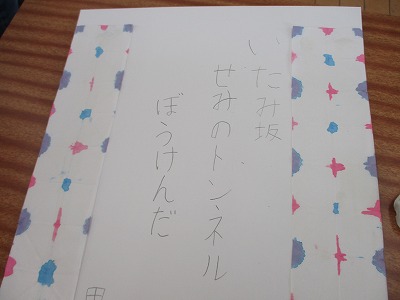 いたみ坂
せみのトンネル
ぼうけんだ